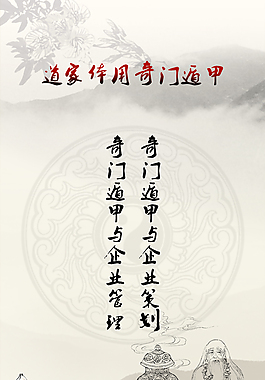 道家体用奇门遁甲
奇门遁甲与企业策划
奇门遁甲与企业管理